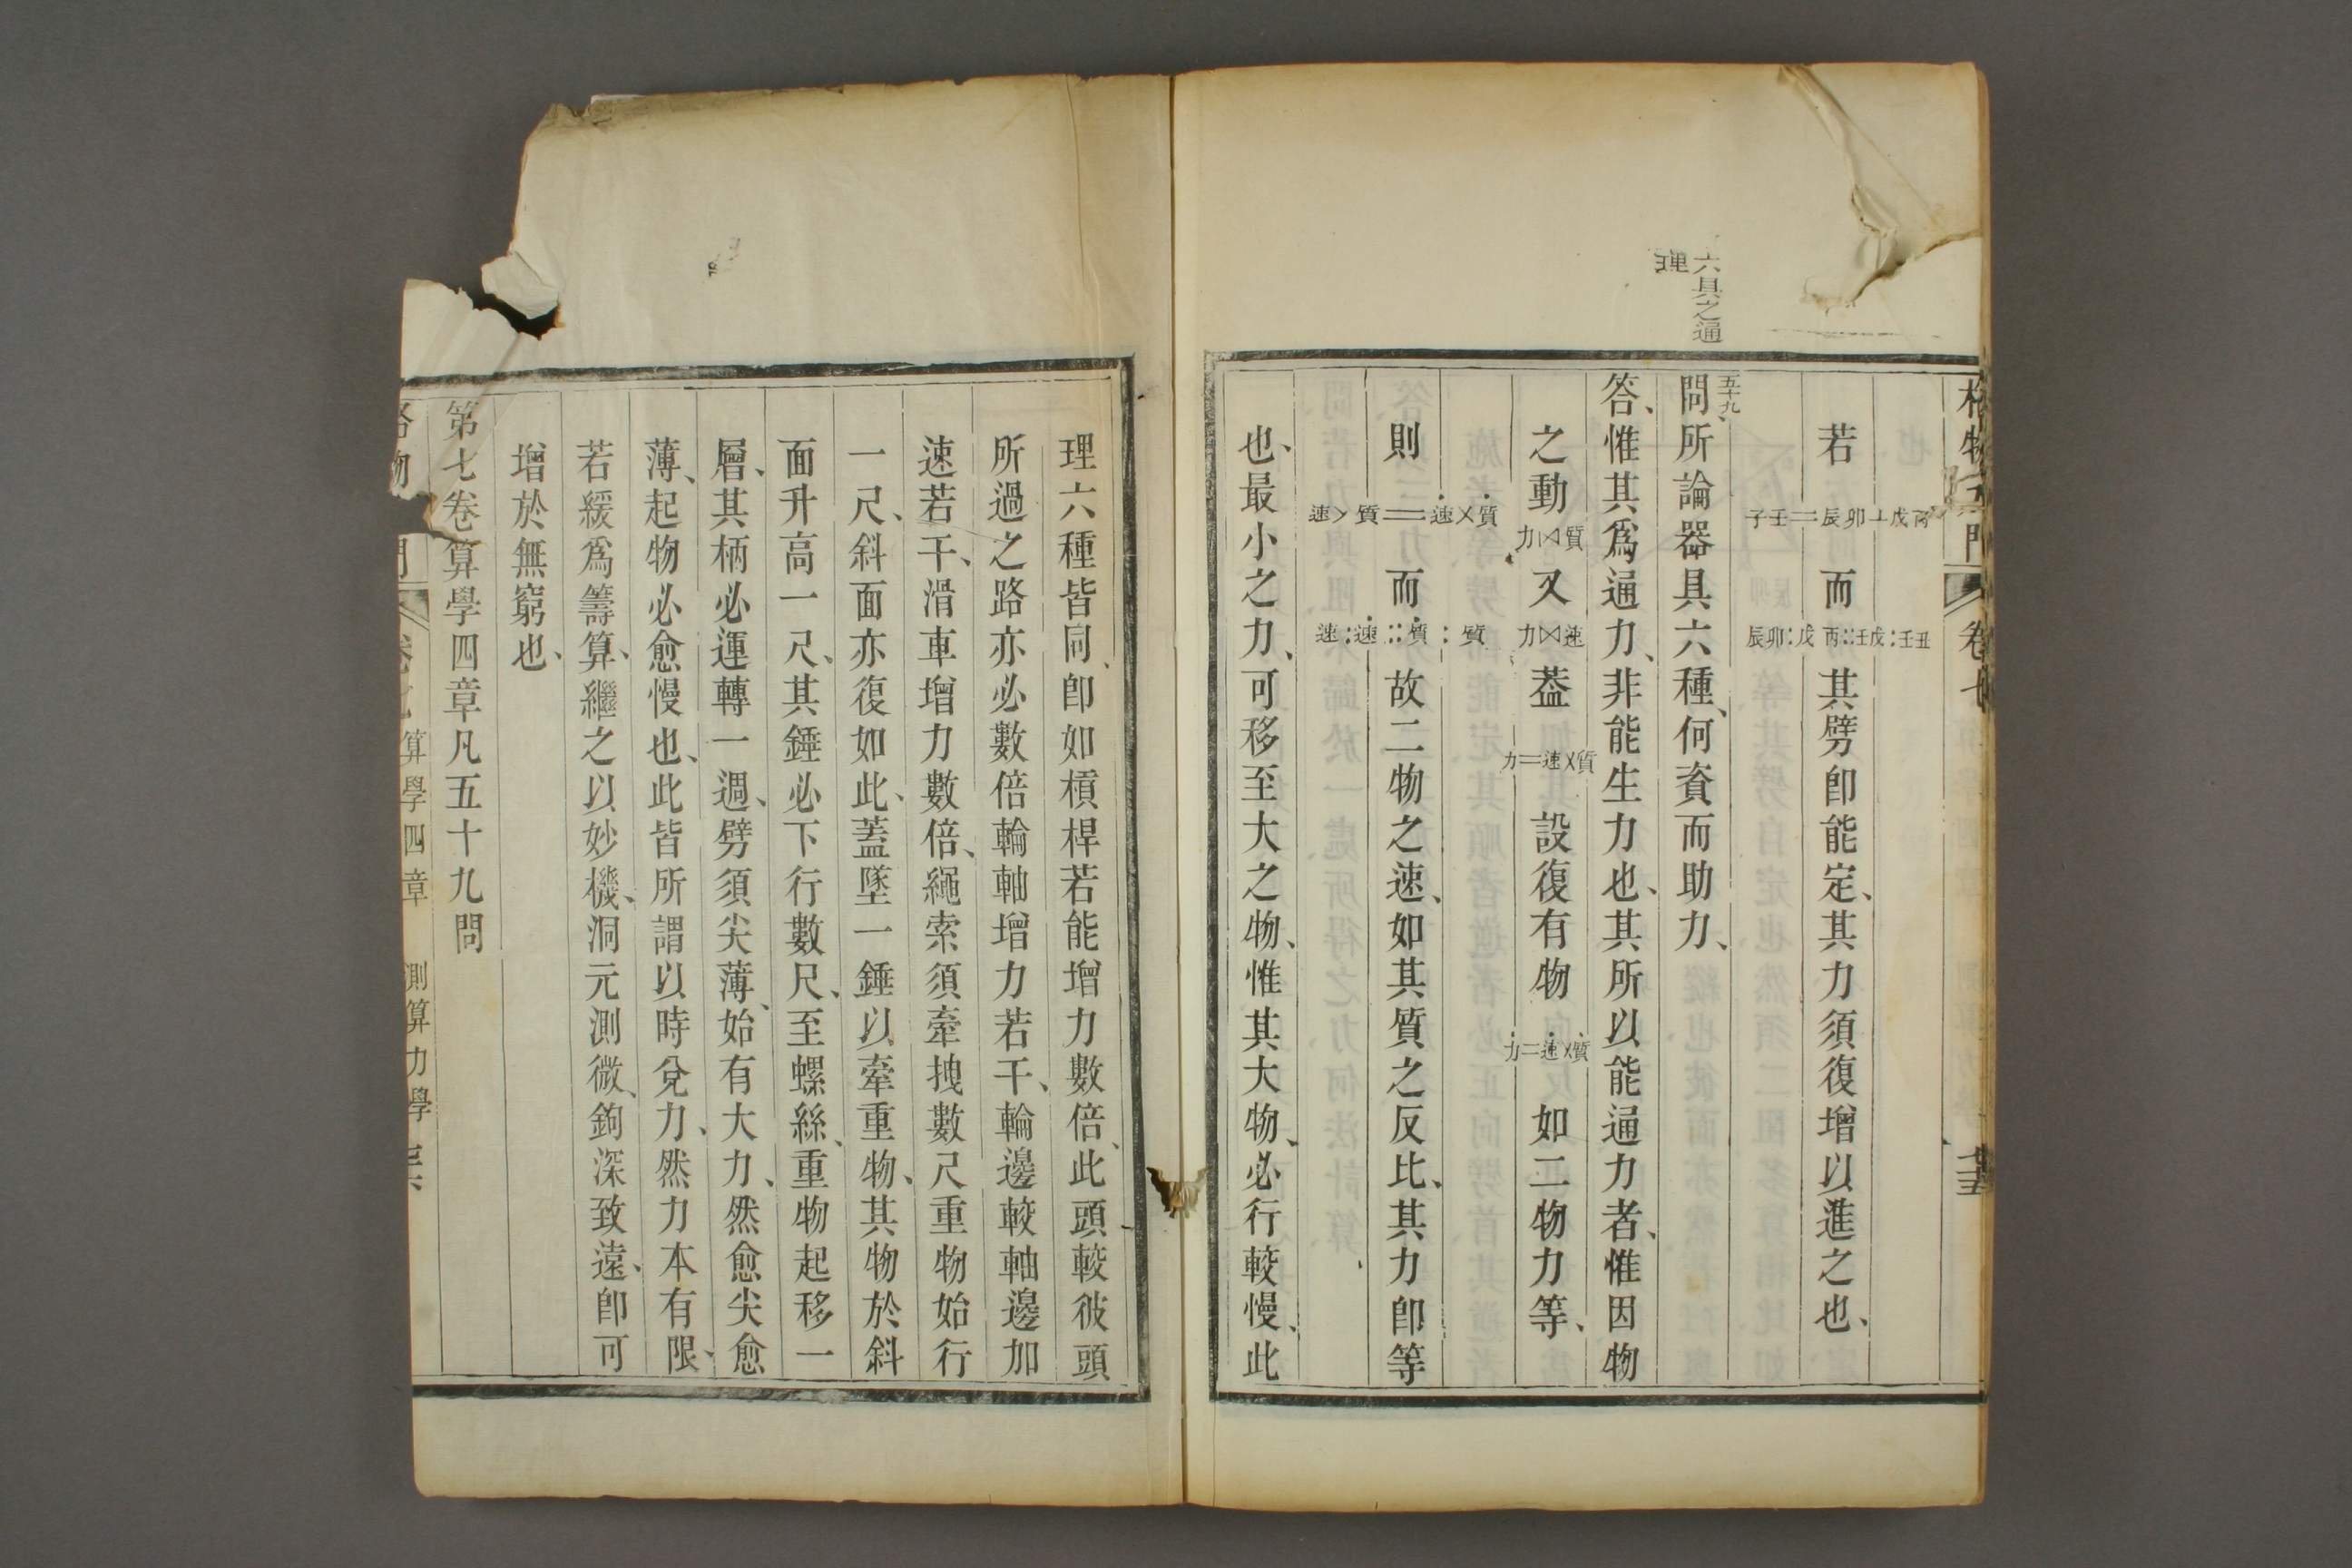 格物入門 卷七
六具之通
理
若 丙戊⊥卯辰=壬子 而 丑壬:壬戊::丙戊:卯辰 其劈卽能定、其力須復增以進之也、
五十九、
問、所論器具六種、何資而助力、
答、惟其爲通力、非能生力也、其所以能通力者、惟因物
之動 質⋈力 又 速⋈力 葢 質×速=力 設復有物 質×速=力 如二物力等、
則 質×速=質×速 而 質:質::速:速 故二物之速、如其質之反比、其力卽等
也、最小之力、可移至大之物、惟其大物、必行較慢、此
理六種皆同、卽如槓桿若能增力數倍、此頭較彼頭
所過之路亦必數倍輪軸增力若干、輪邊較軸邊加
速若干、滑車增力數倍、繩索須牽拽數尺重物始行
一尺、斜面亦復如此、蓋墜一錘以牽重物、其物於斜
面升高一尺、其錘必下行數尺、至螺絲、重物起移一
層、其柄必運轉一週、劈須尖薄、始有大力、然愈尖愈
薄、起物必愈慢也、此皆所謂以時兌力、然力本有限、
若緩爲籌算、繼之以妙機、洞元測微、鉤深致遠、卽可
增於無窮也、
第七卷算學四章凡五十九問
算學四章 測算力學